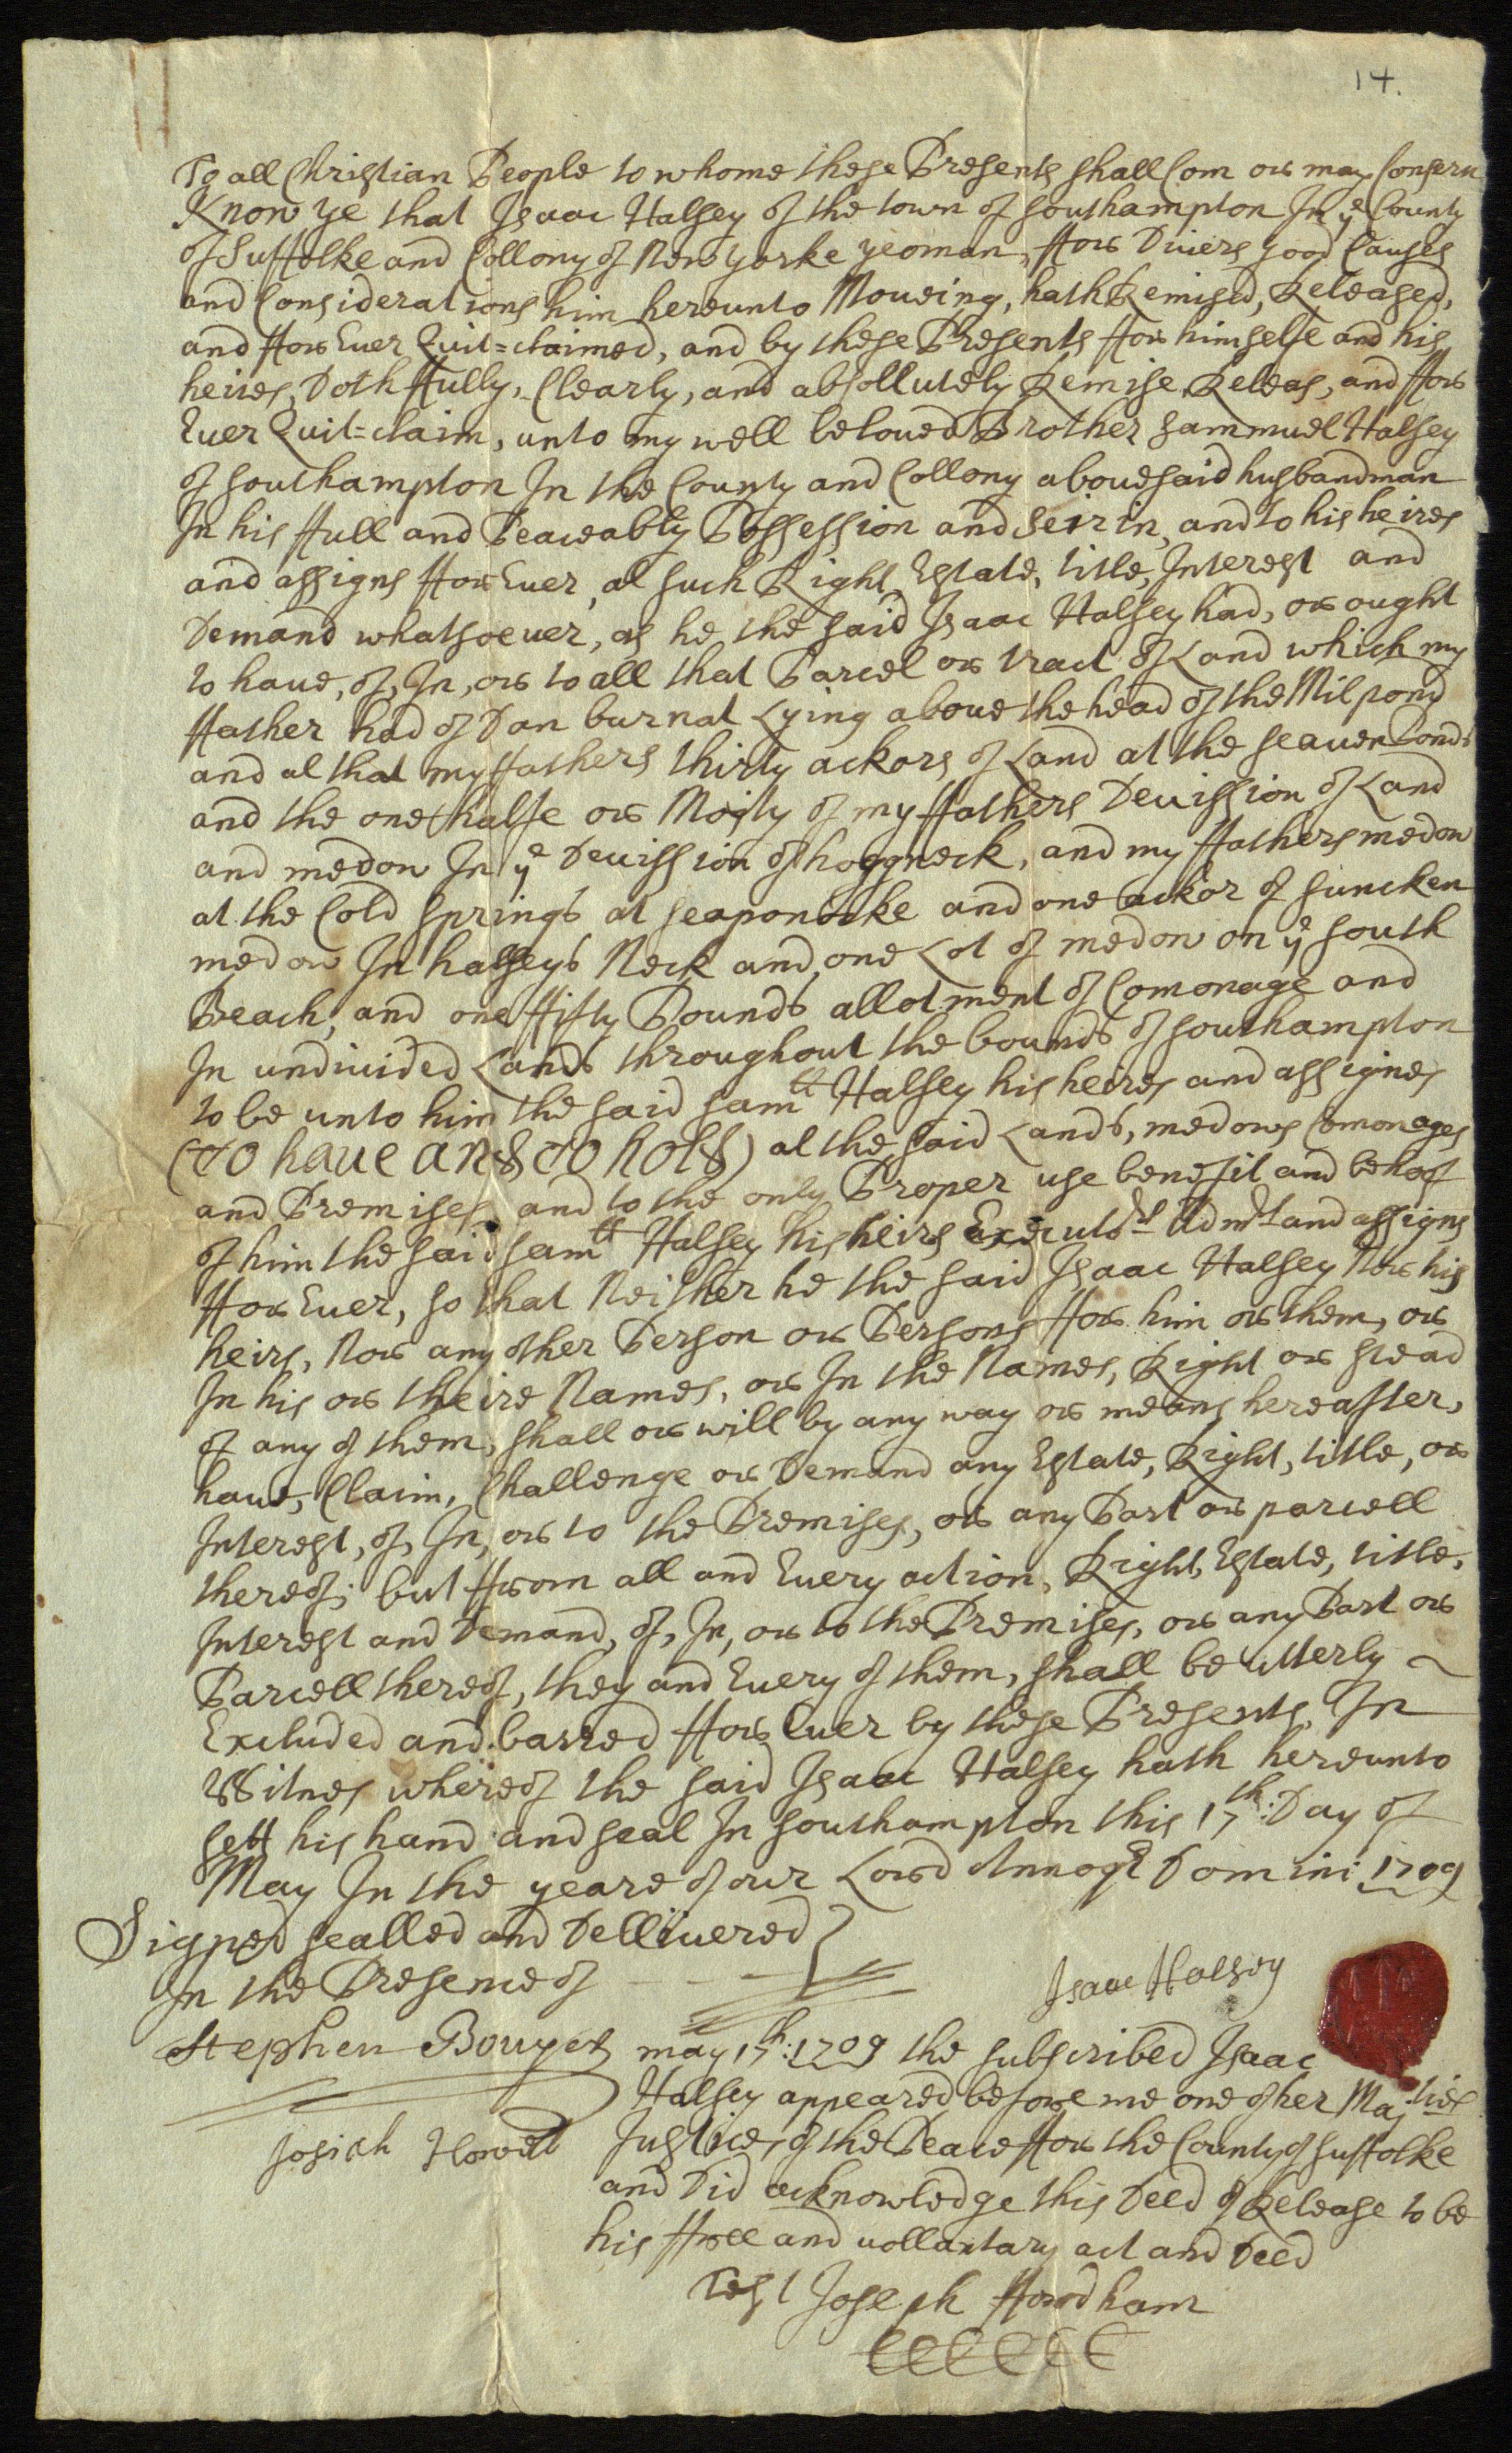 14.
To all Christian People to whome these Presents shall Com or may Consern
Know ye that Isaac Halsey of the town of Southampton In ye County
of Suffolke and Collony of New yorke yeoman, ffor Divers good Causes
and Considerations him hereunto Moueing, hath Remised, Released,
and ffor Euer Quit=claimed, and by these Presents ffor himselfe and his
heires, Doth ffully, Clearly, and absollutely Remise Releas, and ffor
Euer Quit=claim, unto my well beloued Brother Sammuel Halsey
of Southampton In the County and Collony abouesaid husbandman
In his ffull and Peaceably Possession and Seirin, and to his heires
and assigns ffor Euer, al such Right Estate, title, Interest and
Demand whatsoeuer, as he the said Isaac Halsey had, or ought
to haue, of, In, or to all that Parcel or tract of Land which my
ffather had of Dan burnat Lying aboue the head of the Milpond
and al that my ffathers thirty ackors of Land at the seauen Ponds
and the one halfe or Moity of my ffathers Deuission of Land
and medow In ye Deuission of hoggneck, and my ffathers medow
at the Cold springs at seaponocke and one ackor of suncken
medow In halseys Neck and one Lot of medow on ye south
Beach, and one ffifty Pounds allotment of Comonage and
In undiuided Lands throughout the bounds of southampton
to be unto him the said samll Halsey his heires and assignes
(To haue and to hold) al the said Lands, medows Comonages
and Premises, and to the only Proper use benefit and behoof
of him the said samll Halsey his heirs Executrs Admrs and assigns
ffor Euer, so that Neither he the said Isaac Halsey Nor his
heirs, Nor any other Person or Persons ffor him or them, or
In his or theire Names, or In the Names, Right or stead
of any of them, shall or will by any way or means hereafter,
haue, Claim, Challenge or Demand any Estate, Right, title, or
Interest, of, In, or to the Premises, or any Part or parcell
thereof; but ffrom all and Euery action, Right, Estate, title,
Interest and Demand, of, In, or to the Premises, or any Part or
Parcell thereof, they and Euery of them, shall be utterly
Excluded and barred ffor Euer by these Presents, In
Witnes whereof the said Isaac Halsey hath hereunto
sett his hand and seal In Southampton this 17th: Day of
May In the yeare of our Lord Annoqe Domini 1709
Signed sealled and Delliuered
In the Presence of
Isaac Halsey
Stephen Bouyer
Josiah Howell
may 17th: 1709 the subscribed Isaac
Halsey appeared before me one of her Majties
Justices of the Peace ffor the County of suffolke
and Did acknowledge this Deed of Release to be
his ffree and uollantary act and Deed
Test Joseph ffordham